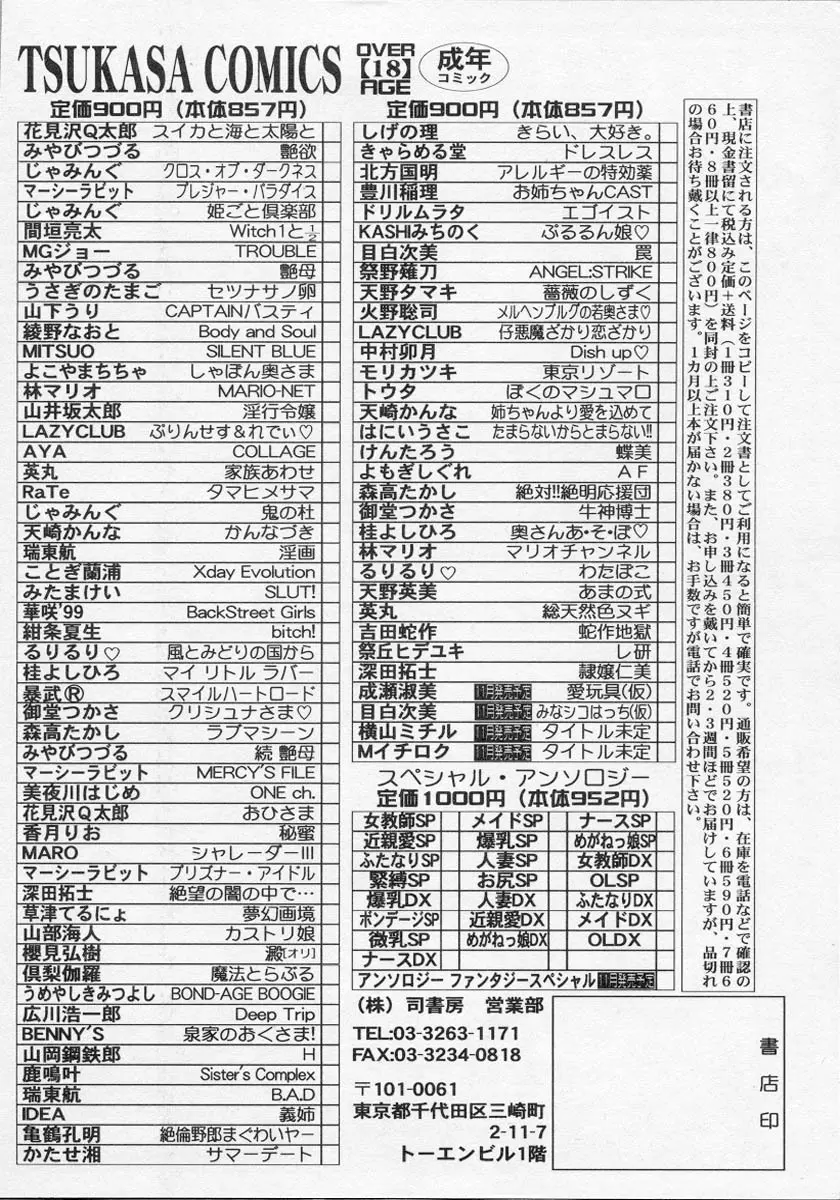 TSUKASA COMICS
OVER
【18】
AGE
成年
コミック
定価900円（本体857円）
花見沢Q太郎 スイカと海と太陽と
みやびつづる 艶欲
じゃみんぐ クロス・オブ・ダークネス
マーシーラビット プレジャー・パラダイス
じゃみんぐ 姫ごと倶楽部
間垣亮太 Witch1と½
MGジョー TROUBLE
みやびつづる 艶母
うさぎのたまご セツナサノ卵
山下うり CAPTAINバスティ
綾野なおと Body and Soul
MITSUO SILENT BLUE
よこやまちちゃ しゃぼん奥さま
林マリオ MARIO-NET
山井坂太郎 淫行令嬢
LAZYCLUB ぷりんせす＆れでぃ♡
AYA COLLAGE
英丸 家族あわせ
RaTe タマヒメサマ
じゃみんぐ 鬼の杜
天崎かんな かんなづき
瑞東航 淫画
ことぎ蘭浦 Xday Evolution
みたまけい SLUT!
華咲'99 BackStreet Girls
紺条夏生 bitch!
るりるり♡ 風とみどりの国から
桂よしひろ マイ リトル ラバー
暴武Ⓡ スマイルハートロード
御堂つかさ クリシュナさま♡
森高たかし ラブマシーン
みやびつづる 続 艶母
マーシーラビット MERCY'S FILE
美夜川はじめ ONE ch.
花見沢Q太郎 おひさま
香月りお 秘蜜
MARO シャレーダーIII
マーシーラビット プリズナー・アイドル
深田拓士 絶望の闇の中で…
草津てるにょ 夢幻画境
山部海人 カストリ娘
櫻見弘樹 澱[オリ]
倶梨伽羅 魔法とらぶる
うめやしきみつよし BOND-AGE BOOGIE
広川浩一郎 Deep Trip
BENNY'S 泉家のおくさま!
山岡鋼鉄郎 H
鹿鳴叶 Sister's Complex
瑞東航 B.A.D
IDEA 義姉
亀鶴孔明 絶倫野郎まぐわいヤー
かたせ湘 サマーデート
定価900円（本体857円）
しげの理 きらい、大好き。
きゃらめる堂 ドレスレス
北方国明 アレルギーの特効薬
豊川稲理 お姉ちゃんCAST
ドリルムラタ エゴイスト
KASHIみちのく ぷるるん娘♡
目白次美 罠
祭野薙刀 ANGEL:STRIKE
天野タマキ 薔薇のしずく
火野聡司 メルヘンブルグの若奥さま♡
LAZYCLUB 仔悪魔ざかり恋ざかり
中村卯月 Dish up♡
モリカツキ 東京リゾート
トウタ ぼくのマシュマロ
天崎かんな 姉ちゃんより愛を込めて
はにいうさこ たまらないからとまらない!!
けんたろう 蝶美
よもぎしぐれ AF
森高たかし 絶対!!絶明応援団
御堂つかさ 牛神博士
桂よしひろ 奥さんあ・そ・ぼ♡
林マリオ マリオチャンネル
るりるり♡ わたぼこ
天野英美 あまの式
英丸 総天然色ヌギ
吉田蛇作 蛇作地獄
祭丘ヒデユキ し研
深田拓士 隷嬢仁美
成瀬淑美 11月発売予定 愛玩具(仮)
目白次美 11月発売予定 みなシコはっち(仮)
横山ミチル 11月発売予定 タイトル未定
Mイチロク 11月発売予定 タイトル未定
スペシャル・アンソロジー
定価1000円（本体952円）
女教師SP メイドSP ナースSP
近親愛SP 爆乳SP めがねっ娘SP
ふたなりSP 人妻SP 女教師DX
緊縛SP お尻SP OLSP
爆乳DX 人妻DX ふたなりDX
ボンデージSP 近親愛DX メイドDX
微乳SP めがねっ娘DX OLDX
ナースDX
アンソロジー ファンタジースペシャル 11月発売予定
（株）司書房 営業部
TEL:03-3263-1171
FAX:03-3234-0818
〒101-0061
東京都千代田区三崎町
2-11-7
トーエンビル1階
書店に注文される方は、このページをコピーして注文書としてご利用になると簡単で確実です。通販希望の方は、在庫を電話などで確認の
上、現金書留にて税込み定価＋送料（1冊310円・2冊380円・3冊450円・4冊520円・5冊520円・6冊590円・7冊6
60円・8冊以上一律800円）を同封の上ご注文下さい。また、お申し込みを戴いてから2・3週間ほどでお届けしていますが、品切れ
の場合お待ち戴くことがございます。1カ月以上本が届かない場合は、お手数ですが電話でお問い合わせ下さい。
書店印